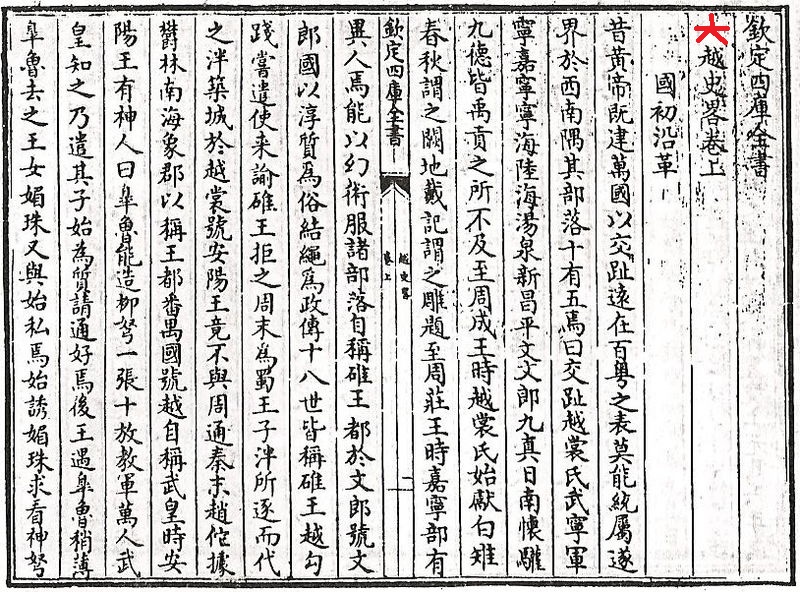 欽定四庫全書
大越史畧卷上
國初沿革
昔黃帝既建萬國以交趾遠在百粤之表莫能統屬遂
界於西南隅其部落十有五焉曰交趾越裳氏武寧軍
寧嘉寧寧海陸海湯泉新昌平文文郎九真日南懷驩
九德皆禹貢之所不及至周成王時越裳氏始獻白雉
春秋謂之闕地戴記謂之雕題至周莊王時嘉寧部有
欽定四庫全書
越史畧
卷上
一
異人焉能以幻術服諸部落自稱碓王都於文郎號文
郎國以淳質爲俗結繩爲政傳十八世皆稱碓王越勾
踐嘗遣使来諭碓王拒之周末爲蜀王子泮所逐而代
之泮築城於越裳號安陽王竟不與周通秦末趙佗據
欝林南海象郡以稱王都番禺國號越自稱武皇時安
陽王有神人曰臯魯能造柳弩一張十放教軍萬人武
皇知之乃遣其子始為質請通好焉後王遇臯魯稍薄
臯魯去之王女媚珠又與始私焉始誘媚珠求看神弩